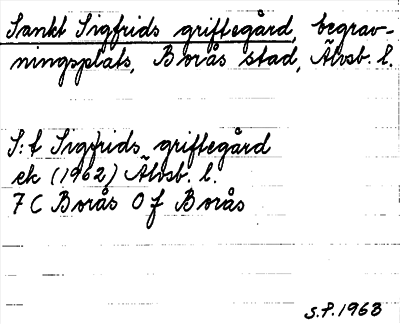 Sankt Sigfrids griftegård, begrav-
ningsplats, Borås stad, Älvsb. l.
S:t Sigfrids griftegård
ek (1962) Älvsb. l.
7 C Borås Of Borås
S.P. 1963